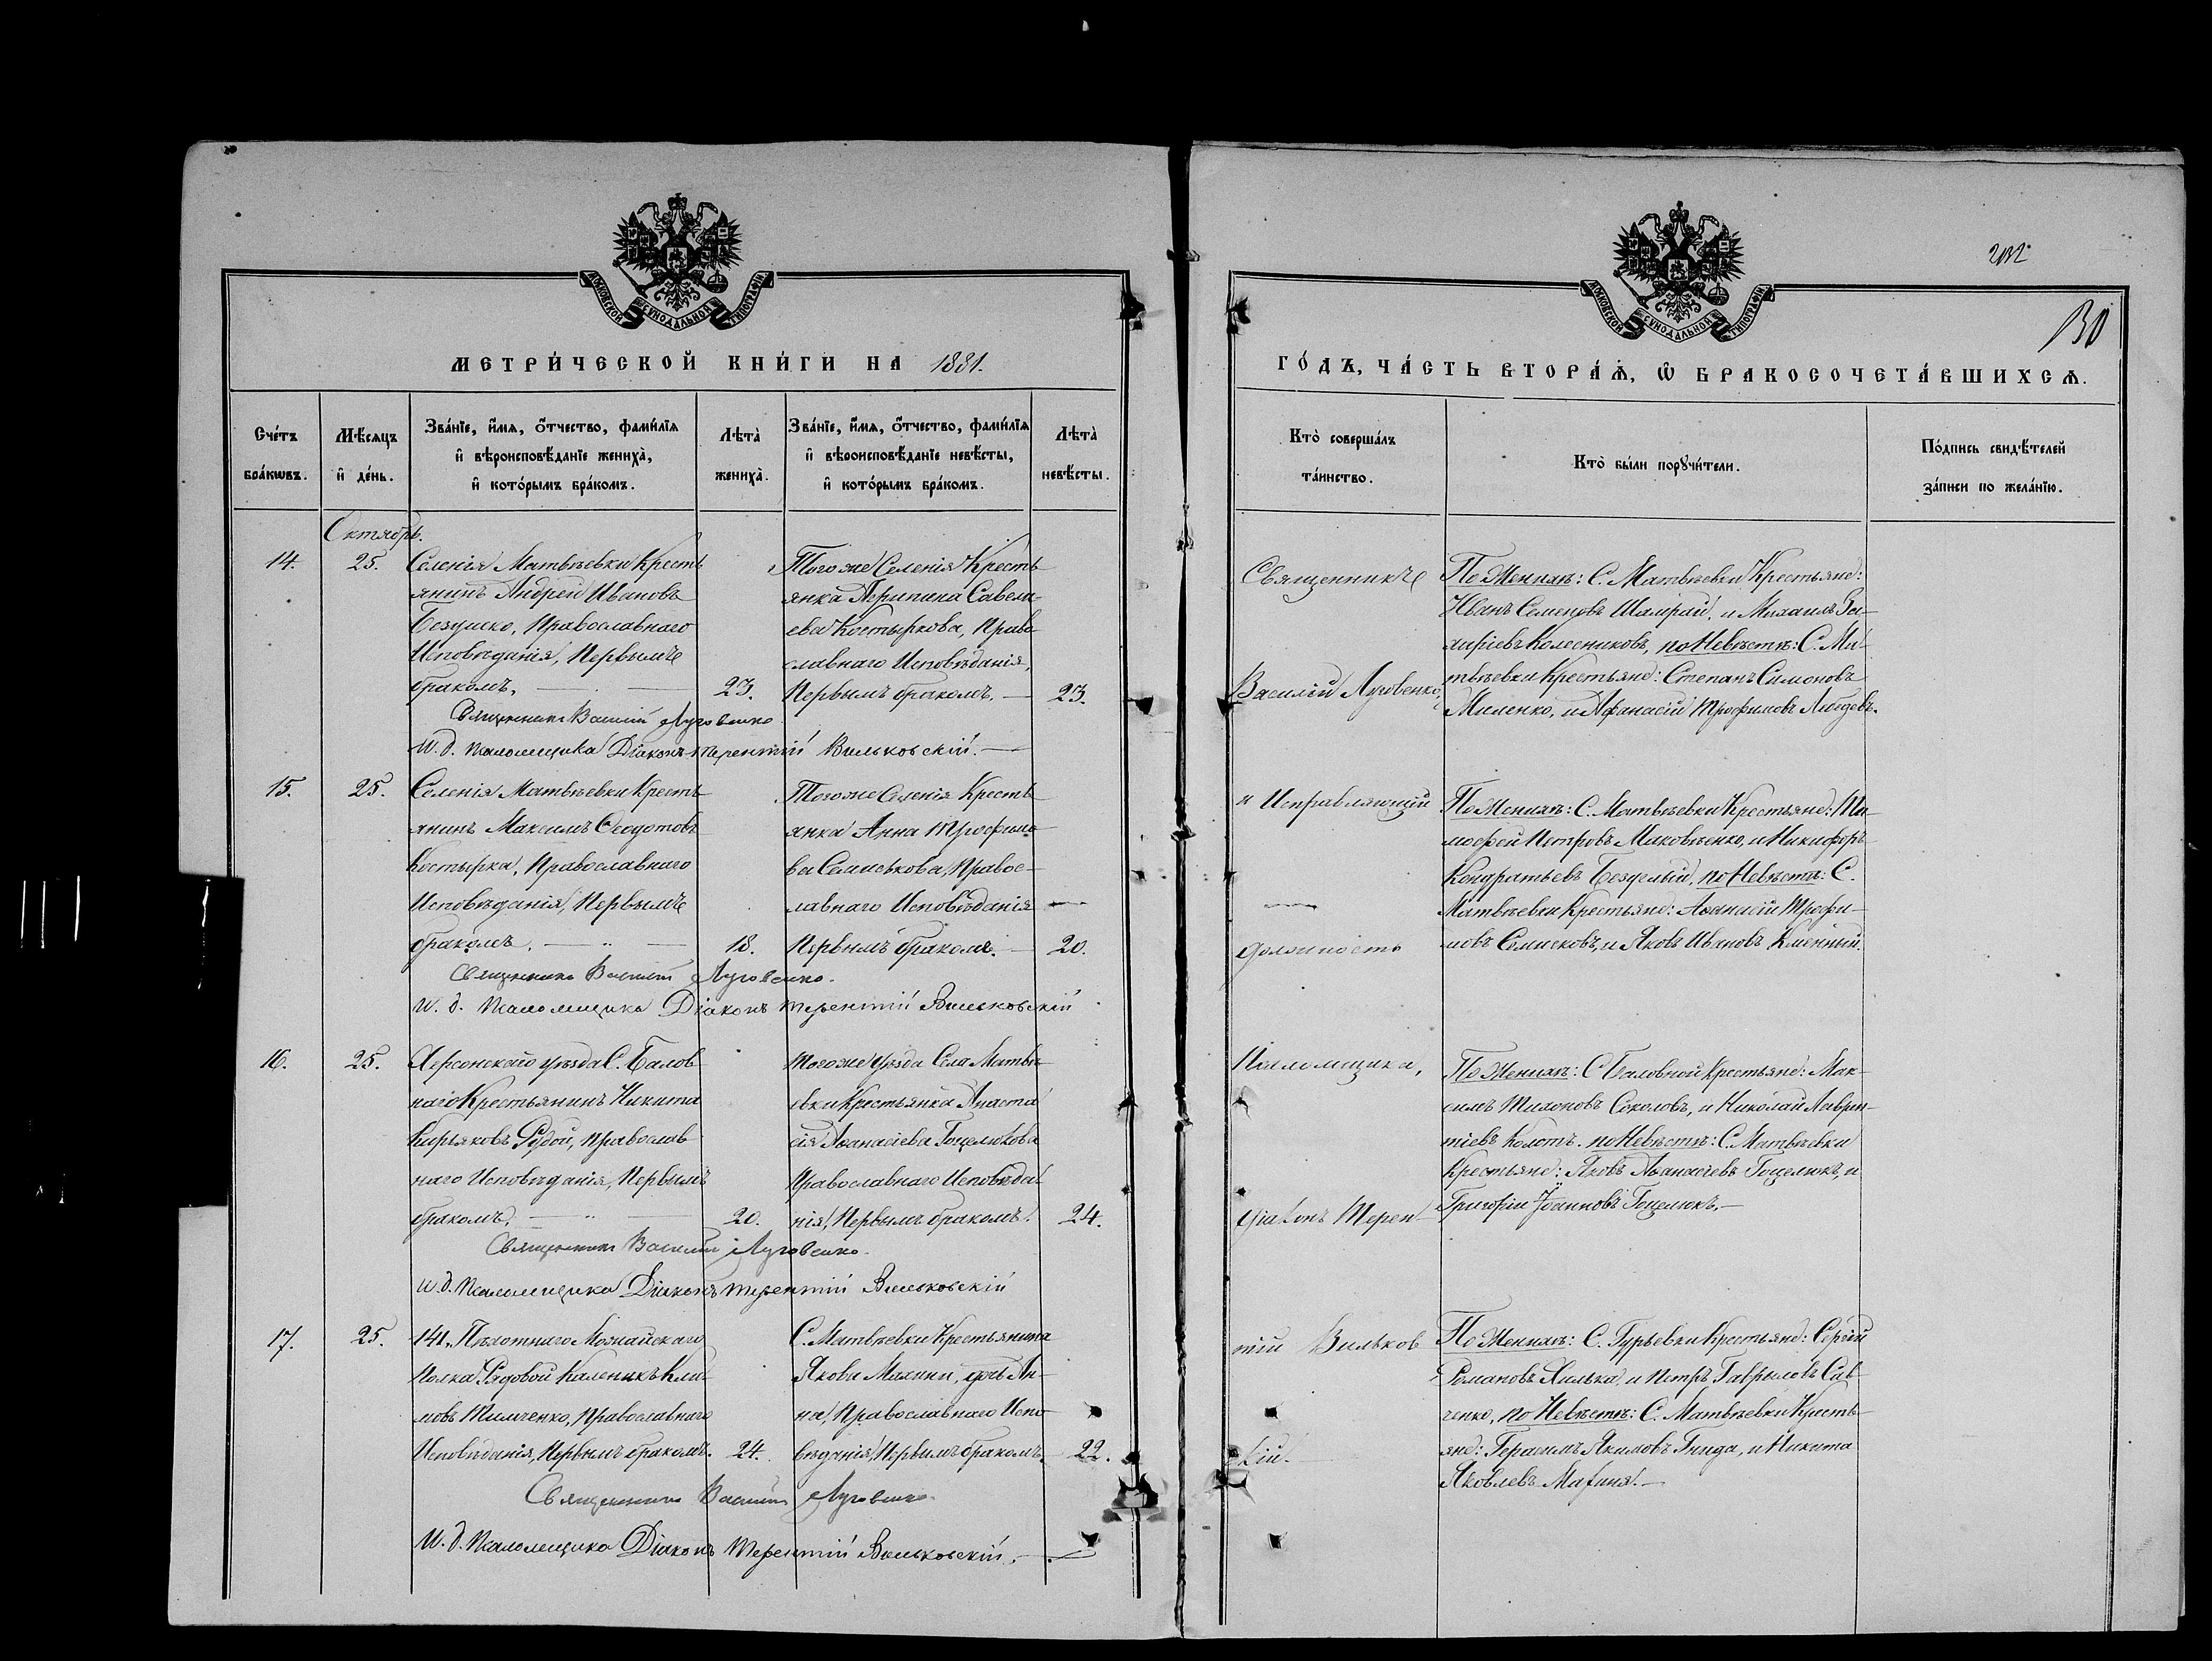 МОСКОВСКОЙ СѴНОДАЛЬНОЙ ТИПОГРАФІИ
МЕТРИ́ЧЕСКОЙ КНИ́ГИ НА 1881.
Сче́тъ бра́кѡвъ.
Мѣ́сяцъ и҆ де́нь.
Зва́нїе, и҆́мѧ, ѻ҆́тчество, фами́лїѧ
и҆ вѣроисповѣ́данїе жениха̀,
и҆ кото́рымъ бра́комъ.
Лѣта̀ жениха̀.
Зва́нїе, и҆́мѧ, ѻ҆́тчество, фами́лїѧ
и҆ вѣроисповѣ́данїе невѣ́сты,
и҆ кото́рымъ бра́комъ.
Лѣта̀ невѣ́сты.
Октябрь.
14.
25.
Селенія Матвѣевки Кресть
янинъ Андрей Ивановъ
Православнаго
Исповѣданія, Первымъ
бракомъ, —
23.
Тогоже Селенія Кресть
янка Агрипина Савели-
ева Костыркова, Право
славнаго Исповѣданія,
Первымъ бракомъ. —
23.
Священникъ Василій Луговенко
И. д. Псаломщика Діаконъ Терентій Вильковскій. —
15.
25.
Селенія Матвѣевки Кресть
янинъ Максимъ Ѳеодотовъ
Костырка, Православнаго
Исповѣданія, Первымъ
бракомъ. — „ —
18.
Тогоже Селенія Кресть
янка Анна Трофимо
ва Семиськова, Правос-
лавнаго Исповѣданія
Первымъ бракомъ. —
20.
Священникъ Василій Луговенко.
И. д. Псаломщика Діаконъ Терентій Вильковскій
16.
25.
Херсонскаго уѣзда С. Балов
наго Крестьянинъ Никита
Кирьяковъ Рудой, православ
наго Исповѣданія, Первымъ
бракомъ, — „ —
20.
Тогоже уѣзда Села Матвѣ
евки Крестьянка Анаста
сія Аѳанасіева Гоцелюкова
Православнаго Исповѣда
нія, Первымъ бракомъ.
24.
Священникъ Василій Луговенко.
И. д. Псаломщика Діаконъ Терентій Вильковскій
17.
25.
141, Пѣхотнаго Можайскаго
Полка Рядовой Каленикъ Кли-
мовъ Тимченко, Православнаго
Исповѣданія, Первымъ бракомъ.
24.
С. Матвѣевки Крестьянина
Якова Махини, дочь Ан-
на, Православнаго Испо
вѣданія, Первымъ бракомъ.
22.
Священникъ Василій Луговенко
И. д. Псаломщика Діаконъ Терентій Вильковскій. —
МОСКОВСКОЙ СѴНОДАЛЬНОЙ ТИПОГРАФІИ
130
ГО́ДЪ, ЧА́СТЬ ВТОРА́Ѧ, Ѽ БРАКОСОЧЕТА́ВШИХСѦ.
Кто̀ соверша́лъ
та́инство.
Кто̀ бы́ли порꙋчи́тели.
По́дпись свидѣ́телей
за́писи по жела́нїю.
Священникъ
Василій Луговенко,
и Исправляющій
должность
Псаломщика,
Діаконъ Терен-
тій Вильков
скій. —
По Женихѣ: С. Матвѣевки Крестьяне:
Иванъ Семеновъ Шамрай, и Михаилъ За-
харіевъ Колесниковъ, по Невѣстѣ: С. Ма-
твѣевки Крестьяне: Степанъ Симоновъ
Миленко, и Афанасій Трофимовъ
По Женихѣ: С. Матвѣевки Крестьяне: Ти-
моѳей Петровъ Маковѣенко, и Никифоръ
Кондратьевъ по Невѣстѣ: С.
Матвѣевки Крестьяне: Аѳанасій Трофи-
мовъ Семисковъ, и Яковъ Ивановъ
По Женихѣ: С. Баловной Крестьяне: Мак-
симъ Тихоновъ Соколовъ, и Николай Лаврен-
тіевъ по Невѣстѣ: С. Матвѣевки
Крестьяне: Яковъ Аѳанасіевъ Гоцелюкъ, и
Григорій Іоанновъ Гоцелюкъ. —
По Женихѣ: С. Гурьевки Крестьяне: Сергій
Романовъ и Петръ Гавриловъ Сав-
ченко, по Невѣстѣ: С. Матвѣевки Кресть-
яне: Герасимъ Якимовъ Гнида, и Никита
Яковлевъ Махиня. —